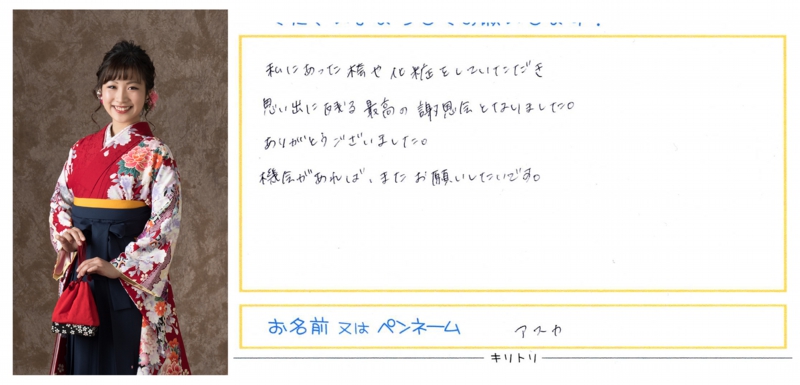 私にあった袴や化粧をしていただき
思い出に残る最高の謝恩会となりました。
ありがとうございました。
機会があれば、またお願いしたいです。
お名前又はペンネーム アスカ
キリトリ